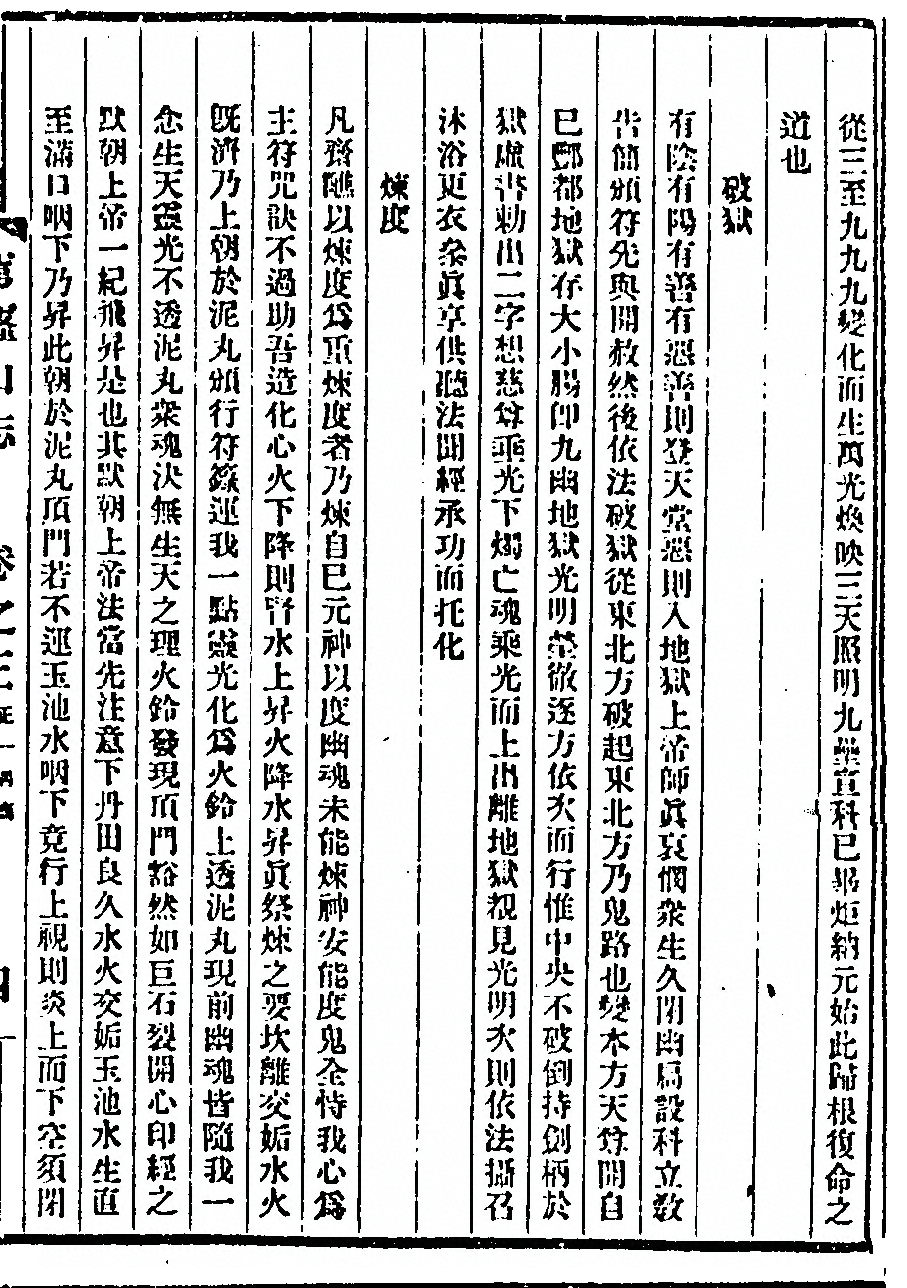 從三至九九九變化而生萬光煥映三天照明九壘宣科已畢炬納元始此歸根復命之
道也
破獄
有陰有陽有善有惡善則登天堂惡則入地獄上帝師眞哀憫衆生久閉幽扃設科立敎
告簡頒符先與開赦然後依法破獄從東北方破起東北方乃鬼路也變本方天尊開自
巳酆都地獄存大小腸卽九幽地獄光明瑩徹逐方依次而行惟中央不破倒持劍柄於
獄虛書勅出二字想慈尊乘光下燭亡魂乘光而上出離地獄覩見光明次則依法攝召
沐浴更衣叅眞享供聽法聞經承功而托化
煉度
凡齋醮以煉度爲重煉度者乃煉自巳元神以度幽魂未能煉神安能度鬼全恃我心爲
主符咒訣不過助吾造化心火下降則腎水上昇火降水昇眞祭煉之要坎離交姤水火
旣濟乃上朝於泥丸頒行符籙運我一點靈光化爲火鈴上透泥丸現前幽魂皆隨我一
念生天靈光不透泥丸衆魂決無生天之理火鈴發現頂門豁然如巨石裂開心印經之
默朝上帝一紀飛昇是也其默朝上帝法當先注意下丹田良久水火交姤玉池水生直
至滿口咽下乃昇此朝於泥丸頂門若不運玉池水咽下竟行上視則炎上而下空須閉
山志 卷之三 四